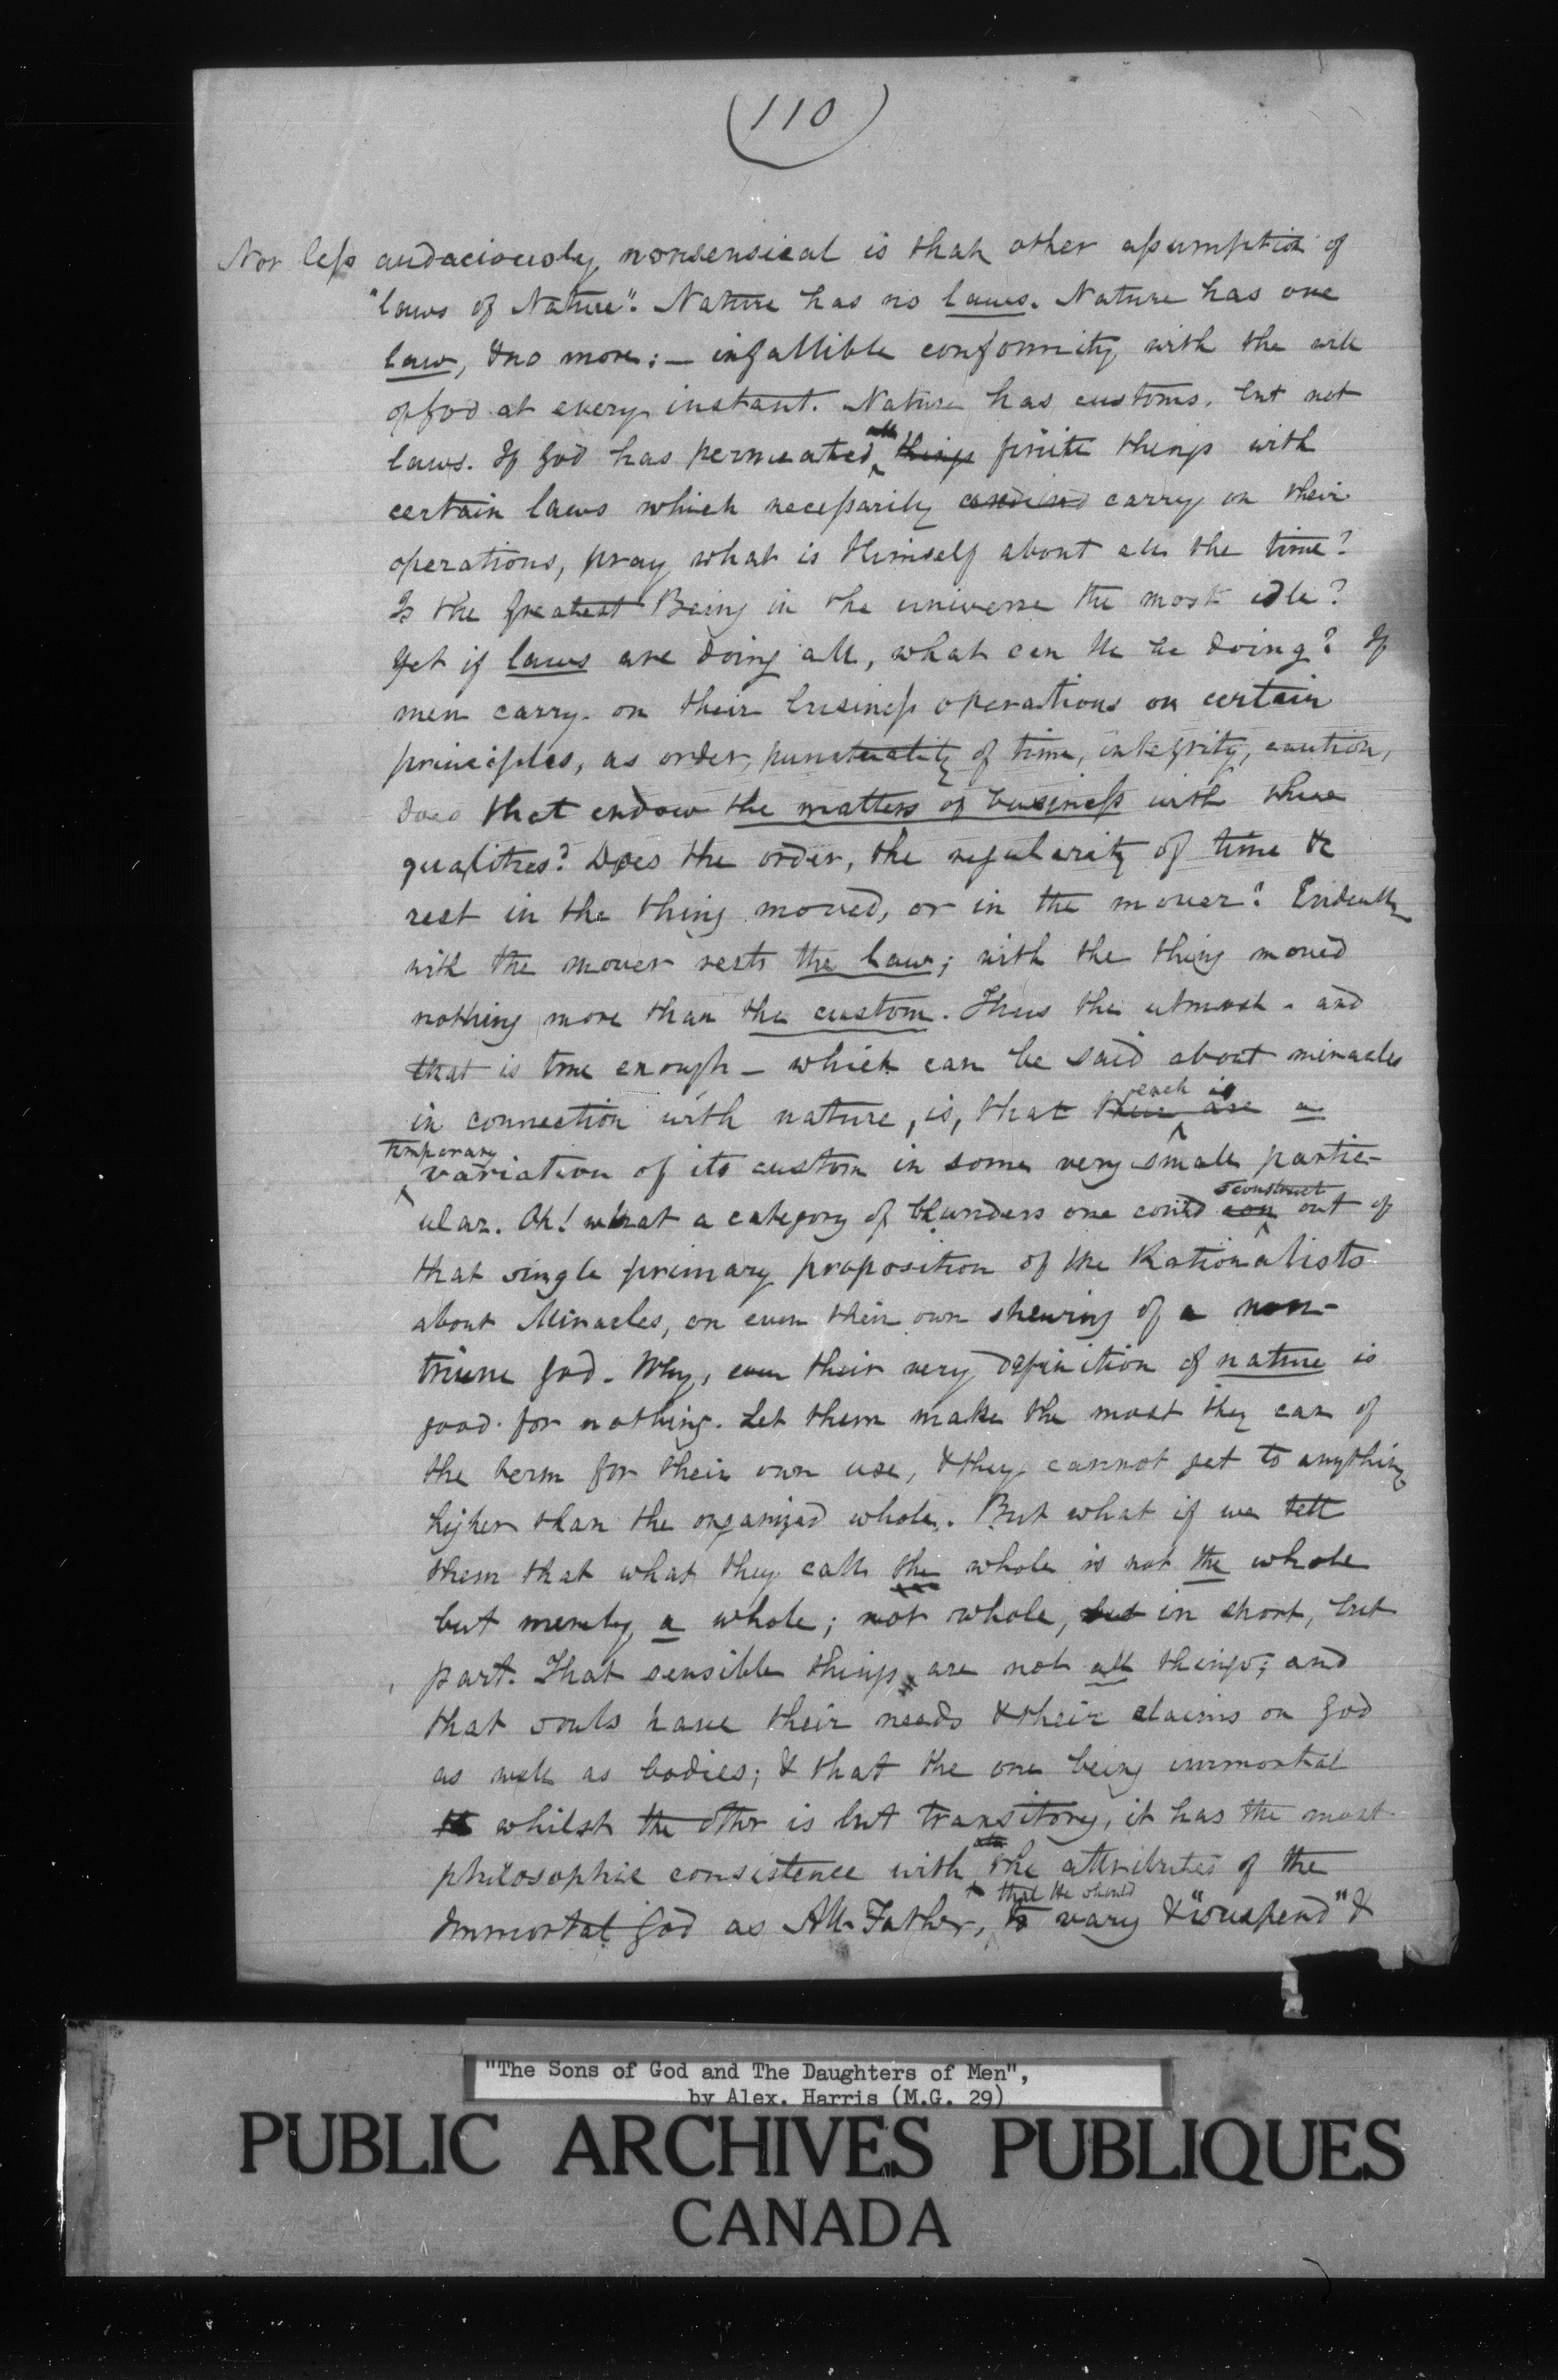 (110)
Nor less audaciously nonsensical is that other assumption of
"laws of Nature". Nature has no laws. Nature has one
law, & no more: — infallible conformity with the will
of God at every instant. Nature has customs, but not
laws. If God has permeated all things finite things with
certain laws which necessarily carry on their
operations, pray what is Himself about all the time?
Is the Greatest Being in the universe the most idle?
Yet if laws are doing all, what can He be doing? If
men carry on their business operations on certain
principles, as order, punctuality of time, integrity, caution,
does that endow the matters of business with these
qualities? Does the order, the regularity of time &c
rest in the thing moved, or in the mover? Evidently
with the mover rests the law; with the thing moved
nothing more than the custom. Thus the utmost - and
that is true enough - which can be said about miracles
in connection with nature, is, that each is a
temporary variation of its custom in some very small partic-
ular. Oh! what a category of blunders one could construct out of
that single primary proposition of the Rationalists
about Miracles, on even their own shewing of a non-
triune God. Why, even their very definition of nature is
good for nothing. Let them make the most they can of
the term for their own use, & they cannot get to anything
higher than the organized whole. But what if we tell
them that what they call the whole is not the whole
but merely a whole; not whole, but in short, but
part. That sensible things are not all things; and
that souls have their needs & their claims on God
as well as bodies; & that the one being immortal
whilst the other is but transitory, it has the most
philosophic consistence with the attributes of the
Immortal God as All-Father, that He should vary & "suspend" &
"The Sons of God and The Daughters of Men",
by Alex. Harris (M.G. 29)
PUBLIC ARCHIVES PUBLIQUES
CANADA